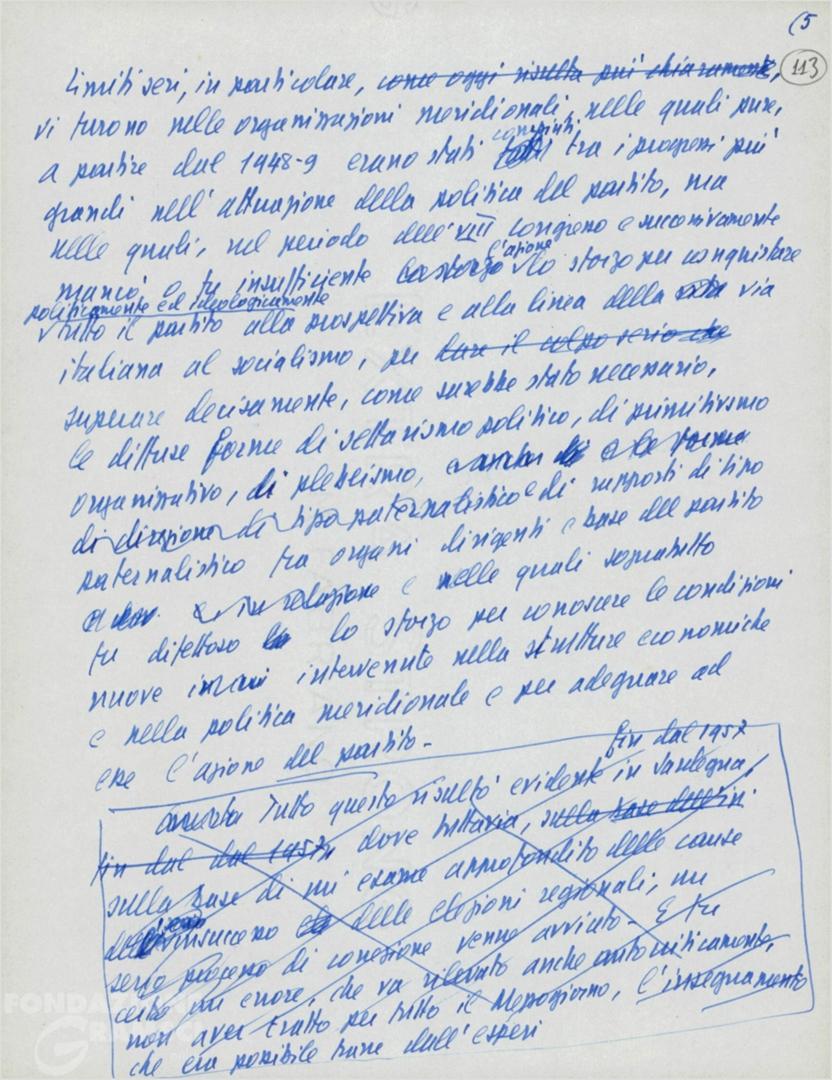 (5
113
Limiti seri, in particolare, come oggi risulta più chiaramente,
vi furono nelle organizzazioni meridionali, nelle quali pure,
a partire dal 1948-9 erano stati compiuti tra i progressi più
grandi nell'attuazione della politica del partito, ma
nelle quali, nel periodo dell'VIII congresso e successivamente
mancò o fu insufficiente lo sforzo l'azione lo sforzo per conquistare
politicamente ed ideologicamente
tutto il partito alla prospettiva e alla linea della via
italiana al socialismo, per dare il colpo serio che
superare decisamente, come sarebbe stato necessario,
le diffuse forme di settarismo politico, di primitivismo
organizzativo, di plebeismo, e anche di e le forme
di direzione di tipo paternalistico e di rapporti di tipo
paternalistico tra organi dirigenti e base del partito
e in relazione e nelle quali soprattutto
fu difettoso lo sforzo per conoscere le condizioni
nuove intervenute nella strutture economiche
e nella politica meridionale e per adeguare ad
esse l'azione del partito.
fin dal 1957
Tutto questo risultò evidente in Sardegna,
fin dal dal 1957, dove tuttavia, sulla base dell'in
sulla base di un esame approfondito delle cause
dell'insuccesso delle elezioni regionali, un
serio processo di correzione venne avviato. E fu
certo un errore, che va rilevato anche autocriticamente,
non aver tratto per tutto il Mezzogiorno, l'insegnamento
che era possibile trarre dall'esperi
FONDAZIONE
GRAMSCI